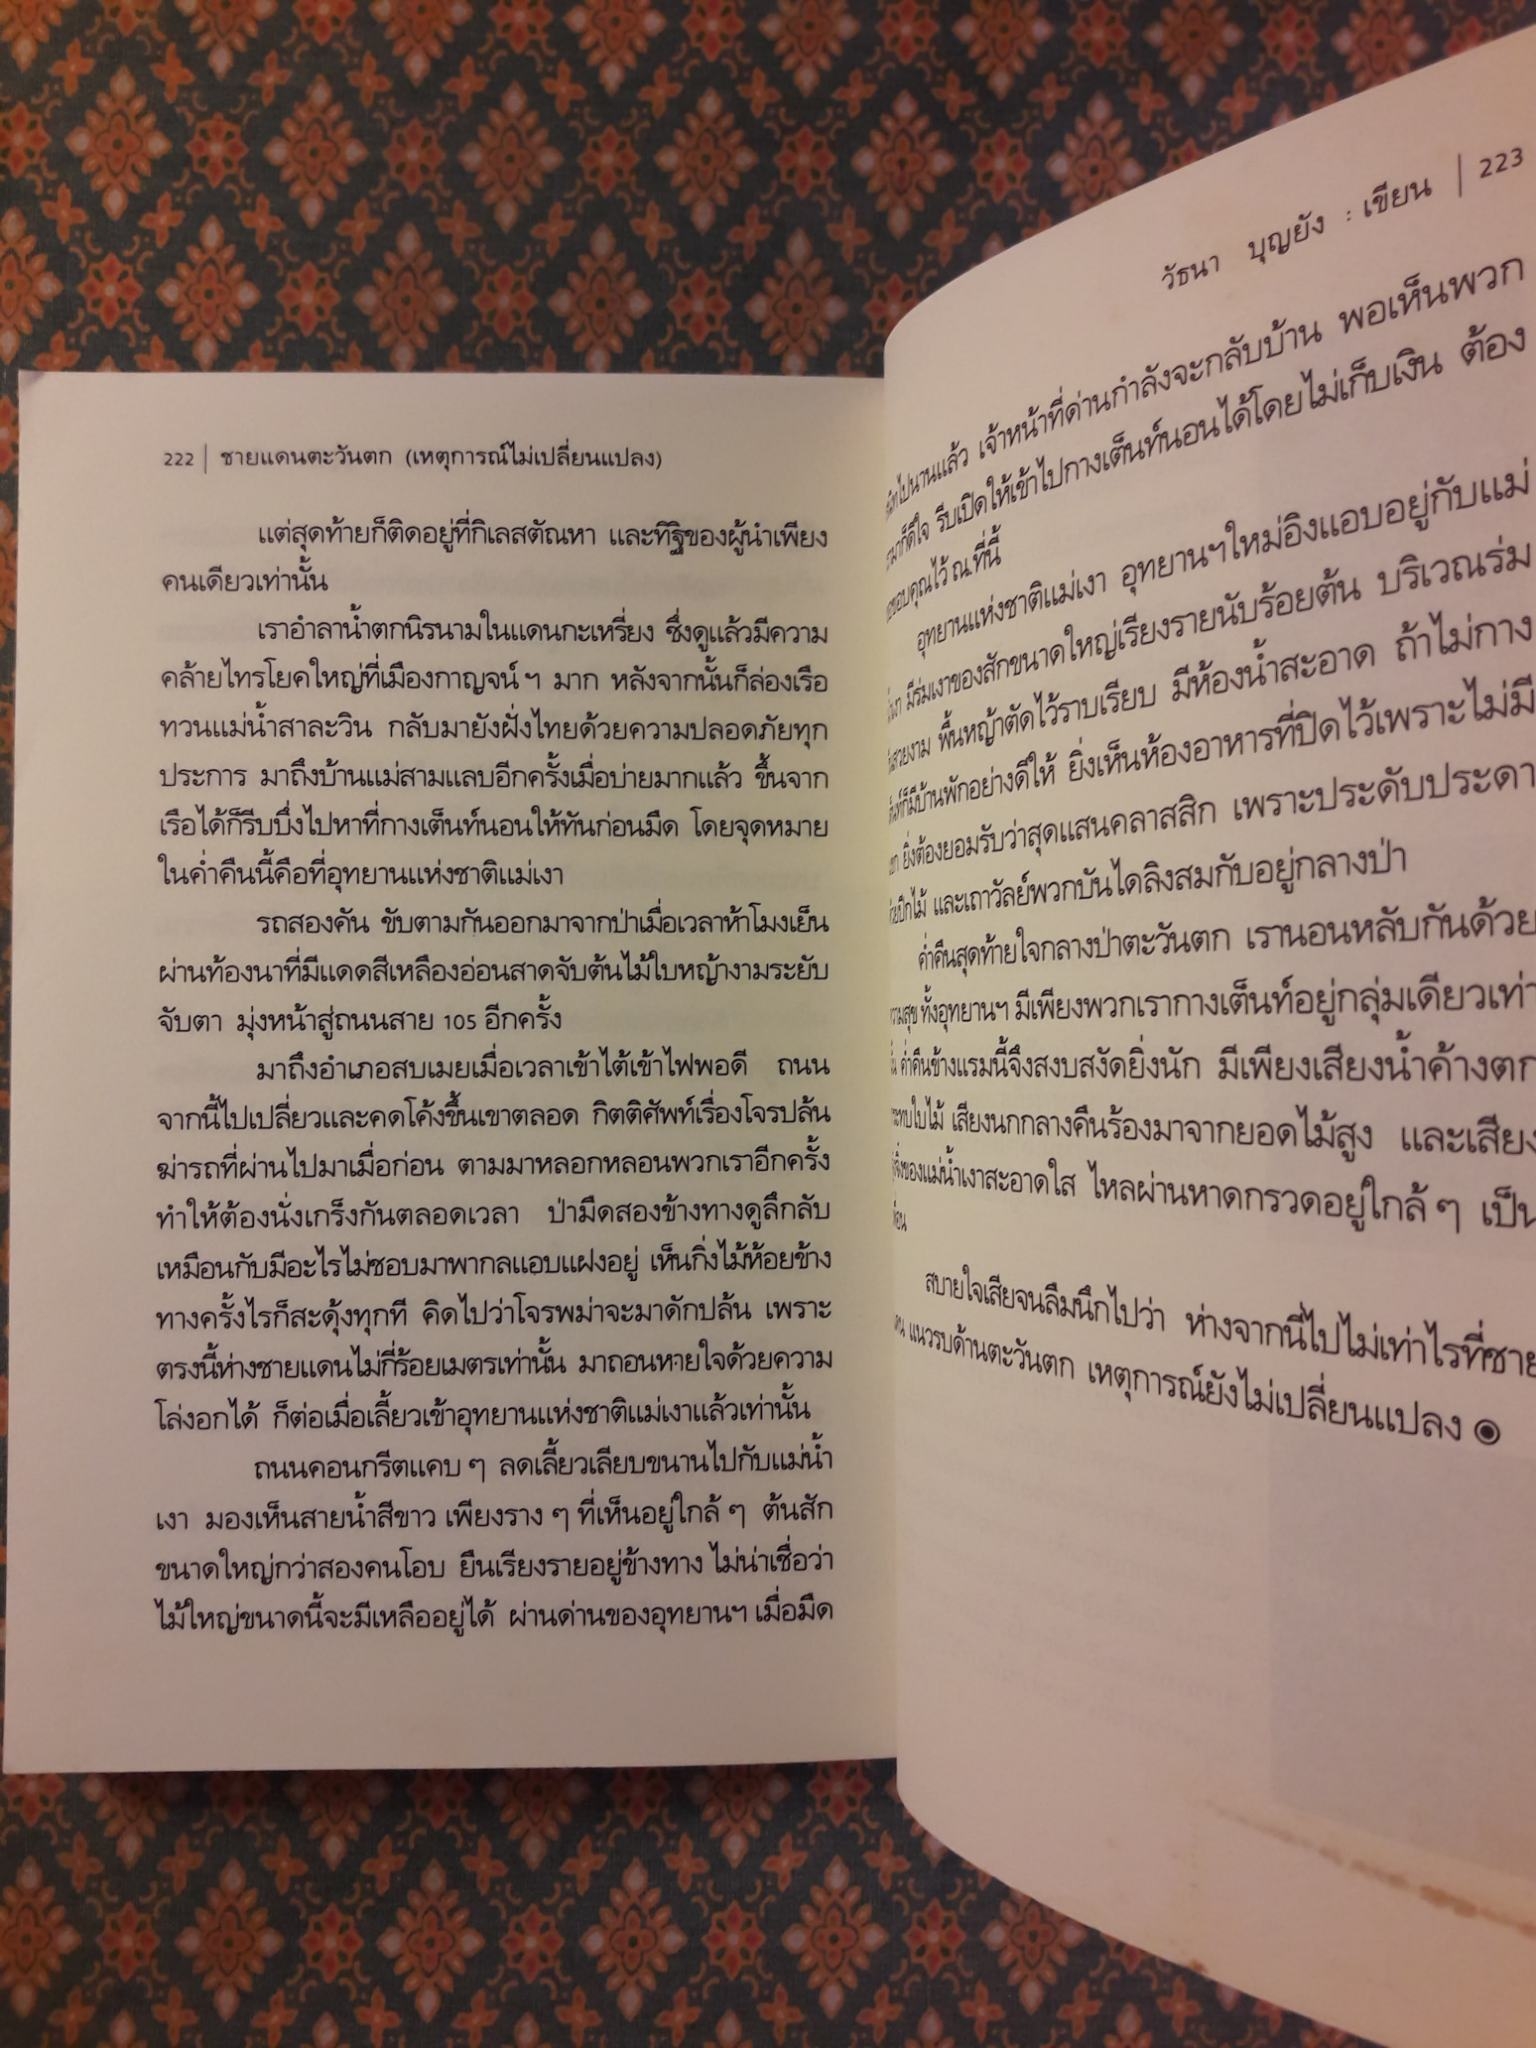 222 | ชายแดนตะวันตก (เหตุการณ์ไม่เปลี่ยนแปลง)
แต่สุดท้ายก็ติดอยู่ที่กิเลสตัณหา และทิฐิของผู้นำเพียง
คนเดียวเท่านั้น
เราอำลาน้ำตกนิรนามในแดนกะเหรี่ยง ซึ่งดูแล้วมีความ
คล้ายไทรโยคใหญ่ที่เมืองกาญจน์ ฯ มาก หลังจากนั้นก็ล่องเรือ
ทวนแม่น้ำสาละวิน กลับมายังฝั่งไทยด้วยความปลอดภัยทุก
ประการ มาถึงบ้านแม่สามแลบอีกครั้งเมื่อบ่ายมากแล้ว ขึ้นจาก
เรือได้ก็รีบบึ่งไปหาที่กางเต็นท์นอนให้ทันก่อนมืด โดยจุดหมาย
ในค่ำคืนนี้คือที่อุทยานแห่งชาติแม่เงา
รถสองคัน ขับตามกันออกมาจากป่าเมื่อเวลาห้าโมงเย็น
ผ่านท้องนาที่มีแดดสีเหลืองอ่อนสาดจับต้นไม้ใบหญ้างามระยับ
จับตา มุ่งหน้าสู่ถนนสาย 105 อีกครั้ง
มาถึงอำเภอสบเมยเมื่อเวลาเข้าไต้เข้าไฟพอดี ถนน
จากนี้ไปเปลี่ยวและคดโค้งขึ้นเขาตลอด กิตติศัพท์เรื่องโจรปล้น
ฆ่ารถที่ผ่านไปมาเมื่อก่อน ตามมาหลอกหลอนพวกเราอีกครั้ง
ทำให้ต้องนั่งเกร็งกันตลอดเวลา ป่ามืดสองข้างทางดูลึกลับ
เหมือนกับมีอะไรไม่ชอบมาพากลแอบแฝงอยู่ เห็นกิ่งไม้ห้อยข้าง
ทางครั้งไรก็สะดุ้งทุกที คิดไปว่าโจรพม่าจะมาดักปล้น เพราะ
ตรงนี้ห่างชายแดนไม่กี่ร้อยเมตรเท่านั้น มาถอนหายใจด้วยความ
โล่งอกได้ ก็ต่อเมื่อเลี้ยวเข้าอุทยานแห่งชาติแม่เงาแล้วเท่านั้น
ถนนคอนกรีตแคบ ๆ ลดเลี้ยวเลียบขนานไปกับแม่น้ำ
เงา มองเห็นสายน้ำสีขาว เพียงราง ๆ ที่เห็นอยู่ใกล้ ๆ ต้นสัก
ขนาดใหญ่กว่าสองคนโอบ ยืนเรียงรายอยู่ข้างทาง ไม่น่าเชื่อว่า
ไม้ใหญ่ขนาดนี้จะมีเหลืออยู่ได้ ผ่านด่านของอุทยานฯ เมื่อมืด
วัธนา บุญยัง : เขียน | 223
ไปนานแล้ว เจ้าหน้าที่ด่านกำลังจะกลับบ้าน พอเห็นพวก
มาก็ดีใจ รีบเปิดให้เข้าไปกางเต็นท์นอนได้โดยไม่เก็บเงิน ต้อง
ขอบคุณไว้ ณ.ที่นี้
อุทยานแห่งชาติแม่เงา อุทยานฯใหม่อิงแอบอยู่กับแม่
มีร่มเงาของสักขนาดใหญ่เรียงรายนับร้อยต้น บริเวณร่ม
สวยงาม พื้นหญ้าตัดไว้ราบเรียบ มีห้องน้ำสะอาด ถ้าไม่กาง
ก็มีบ้านพักอย่างดีให้ ยิ่งเห็นห้องอาหารที่ปิดไว้เพราะไม่มี
ยิ่งต้องยอมรับว่าสุดแสนคลาสสิก เพราะประดับประดา
ปีกไม้ และเถาวัลย์พวกบันไดลิงสมกับอยู่กลางป่า
ค่ำคืนสุดท้ายใจกลางป่าตะวันตก เรานอนหลับกันด้วย
ทั้งอุทยานฯ มีเพียงพวกเรากางเต็นท์อยู่กลุ่มเดียวเท่า
ค่ำคืนข้างแรมนี้จึงสงบสงัดยิ่งนัก มีเพียงเสียงน้ำค้างตก
ใบไม้ เสียงนกกลางคืนร้องมาจากยอดไม้สูง และเสียง
ของแม่น้ำเงาสะอาดใส ไหลผ่านหาดกรวดอยู่ใกล้ ๆ เป็น
สบายใจเสียจนลืมนึกไปว่า ห่างจากนี่ไปไม่เท่าไรที่ชาย
แนวรบด้านตะวันตก เหตุการณ์ยังไม่เปลี่ยนแปลง